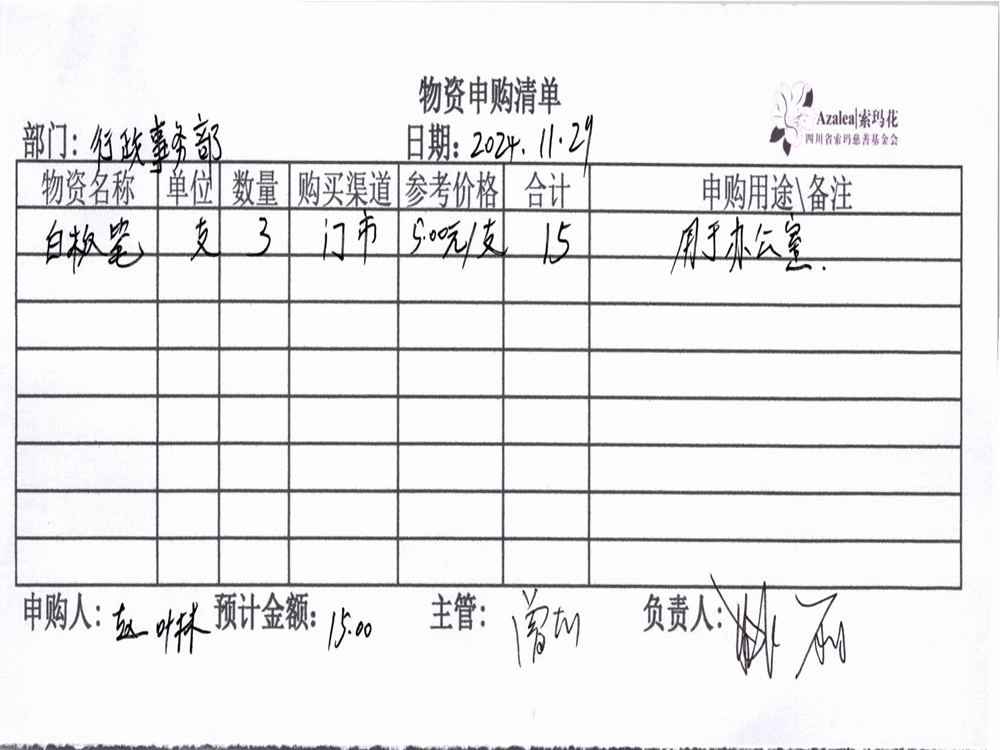 物资申购清单
Azalea|索玛花
四川省索玛慈善基金会
部门：行政事务部 日期：2024.11.29
物资名称 单位 数量 购买渠道 参考价格 合计 申购用途\备注
白板笔 支 3 门市 5.00元/支 15 用于办公室.
申购人：赵叶林 预计金额：15.00 主管： 负责人：